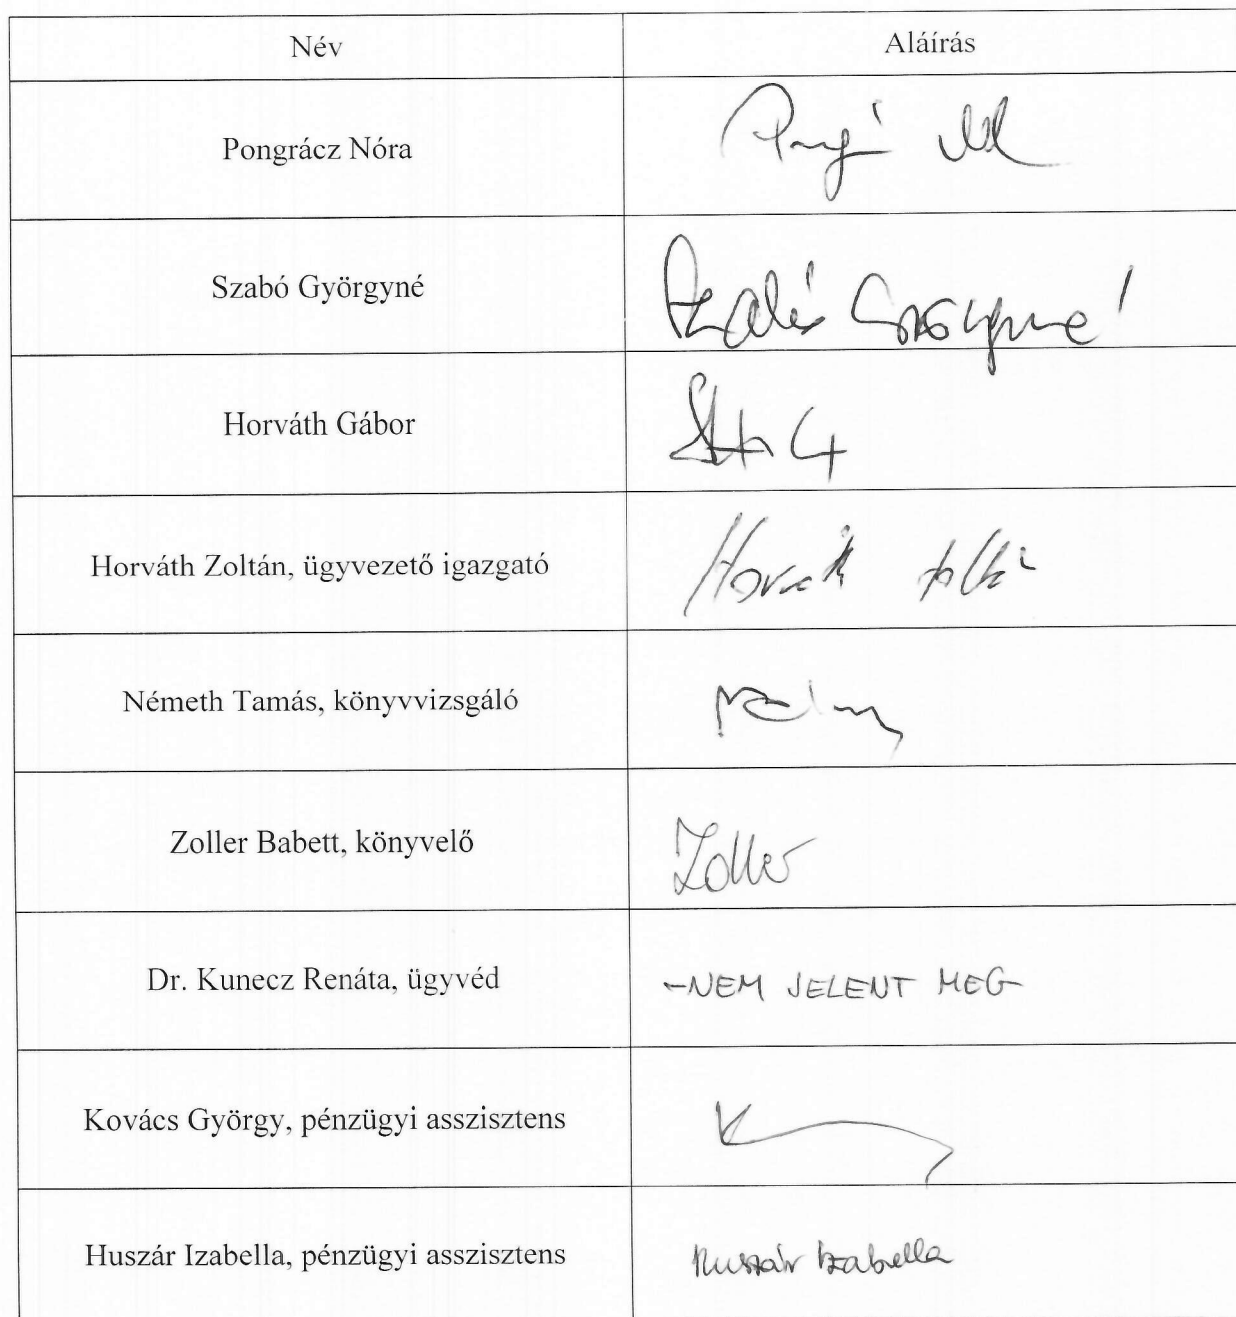 Név Aláírás
Pongrácz Nóra
Szabó Györgyné Szabó Györgyné
Horváth Gábor
Horváth Zoltán, ügyvezető igazgató Horváth Zoltán
Németh Tamás, könyvvizsgáló
Zoller Babett, könyvelő Zoller
Dr. Kunecz Renáta, ügyvéd -NEM JELENT MEG-
Kovács György, pénzügyi asszisztens
Huszár Izabella, pénzügyi asszisztens Huszár Izabella